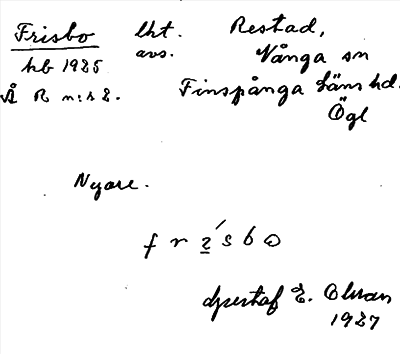 Frisbo lht. Restad,
hb 1925 avs. Vånga sn
Å R n:r 2. Finspånga läns hd.
Ögl
Nyare.
f r i ́ s b ω
Gustaf E. Olsson
1927